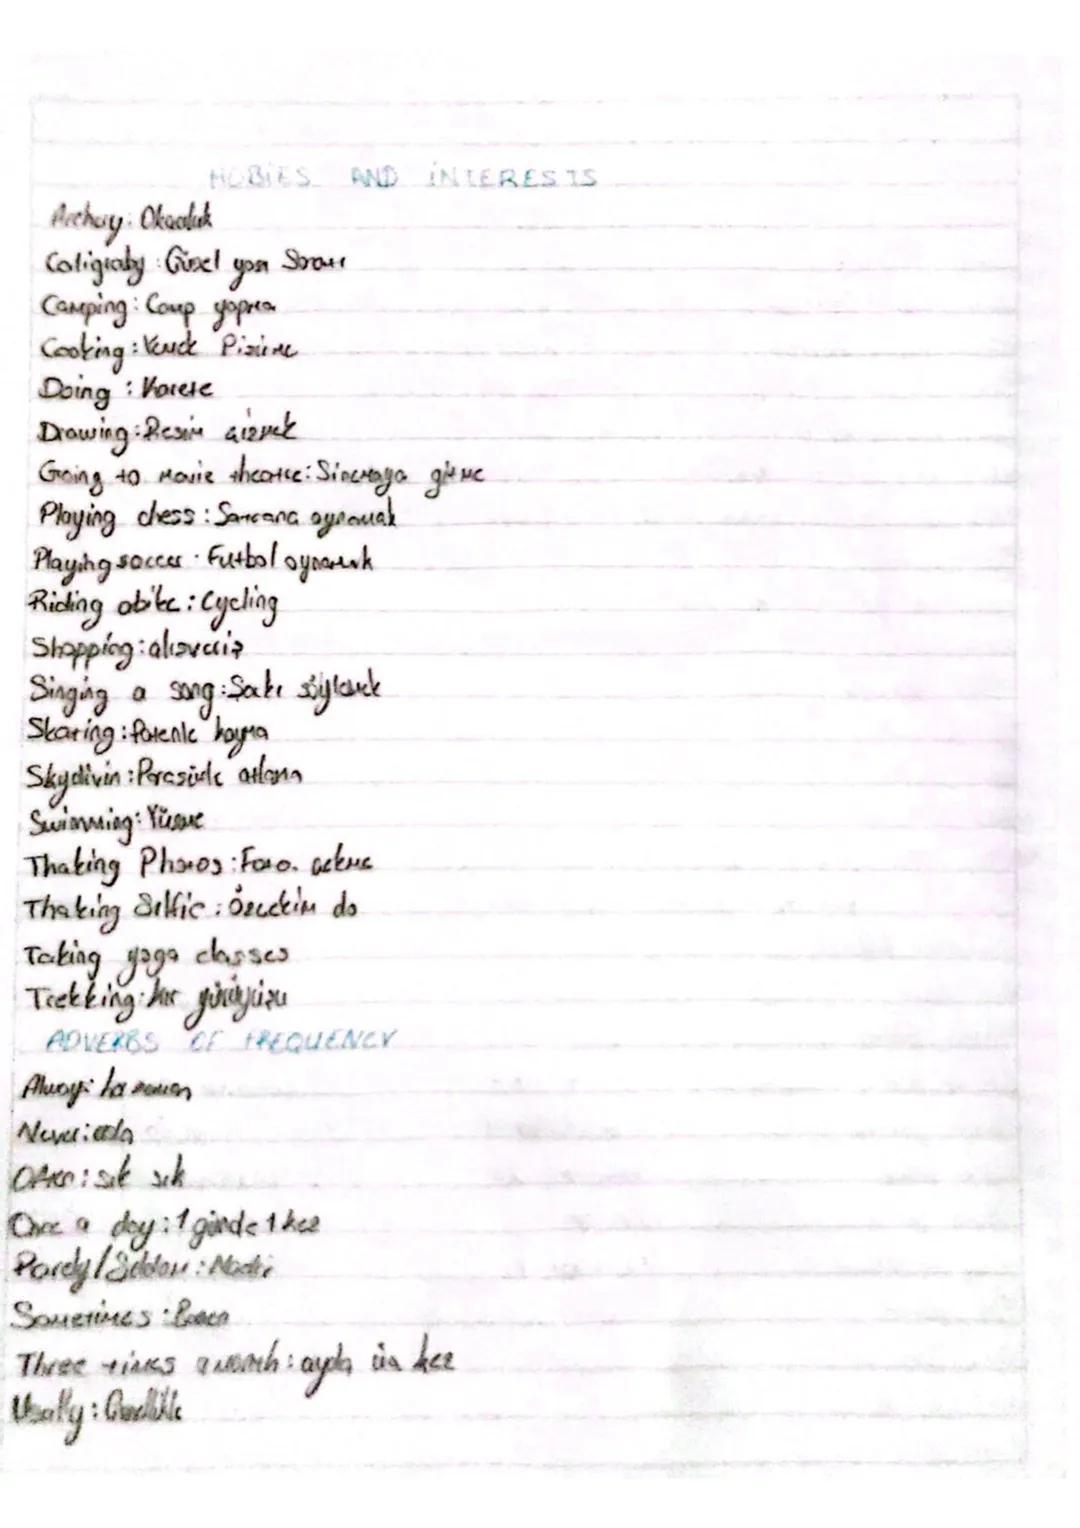 HOBİES AND İNTERESTS
Archery: Okçuluk
Caligraby: Güzel yazı Sanatı
Camping: Camp yapma
Cooking: Yemek Pişirme
Doing: Karete
Drawing: Resim çizmek
Going to movie theatre: Sinemaya gitme
Playing chess: Satranç oynamak
Playing soccer: Futbol oynamak
Riding abike: Cycling
Shopping: alışveriş
Singing a song: Şarkı söylemek
Skating: Patenle kayma
Skydivin: Paraşütle atlama
Swimming: Yüzme
Thaking Photos: Foto. çekme
Thaking Selfie: Özçekim
Taking yoga classes
Trekking: yürüyüşü
ADVERBS OF FREQUENCY
Always: her zaman
Never: asla
Often: sık sık
Once a day: 1 günde 1 kez
/Seldom: Nadir
Sometimes: Bazen
Three times a month: ayda üç kez
Usally: Genellikle